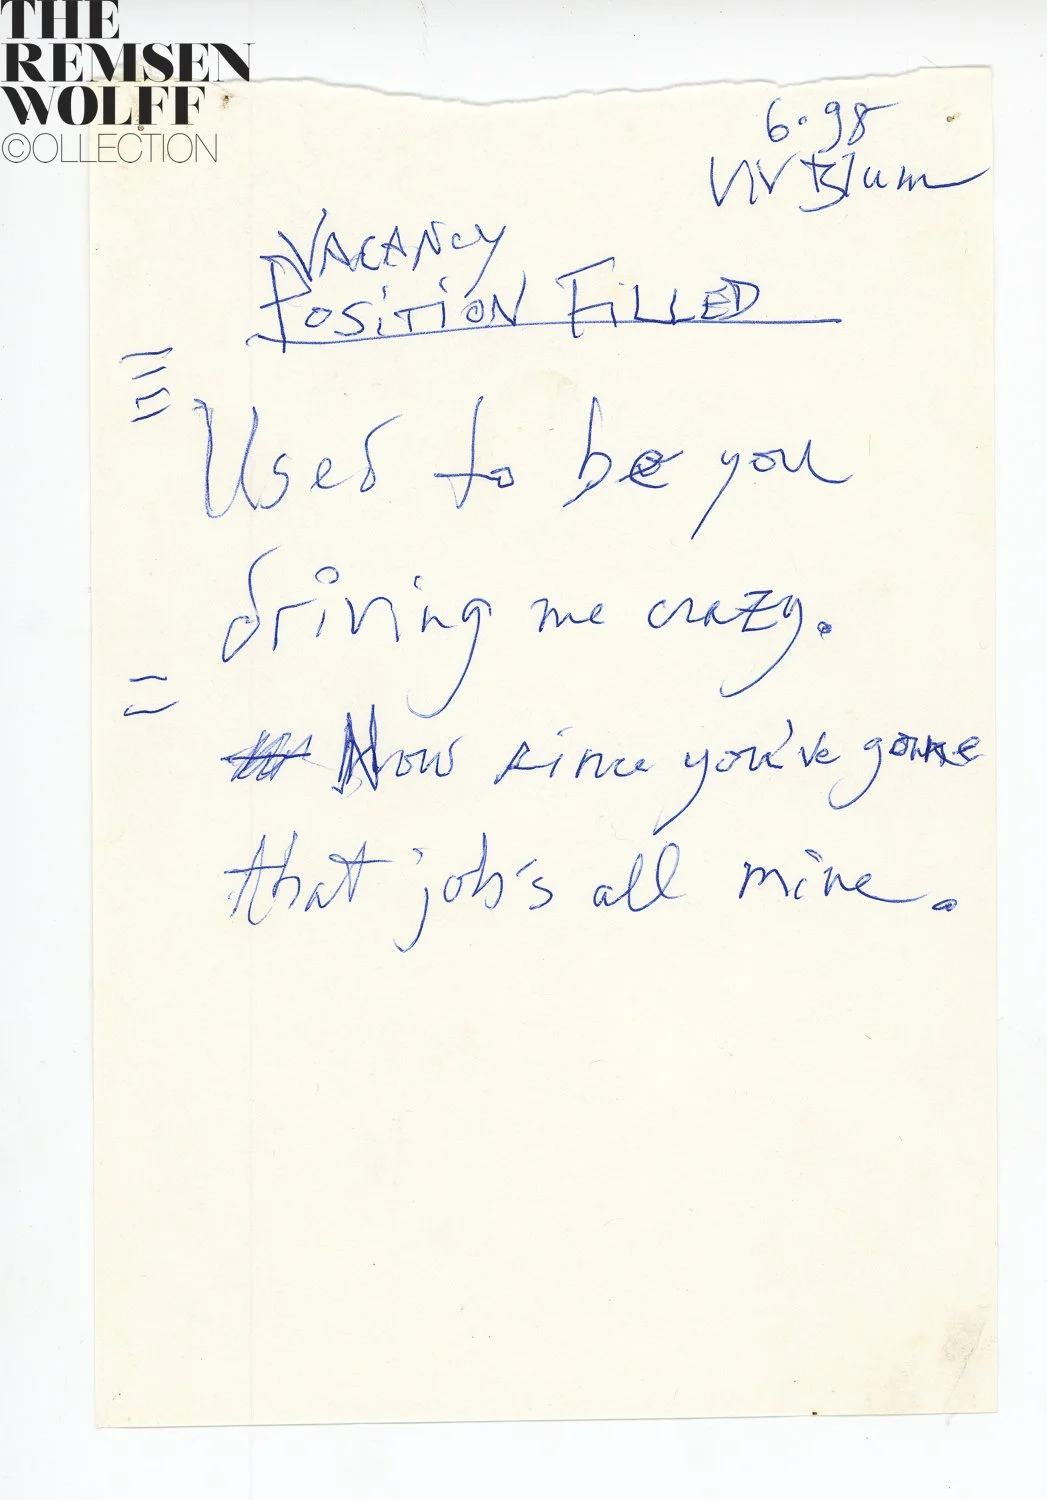 THE
REMSEN
WOLFF
©OLLECTION
6.98
Viv Blum
VACANCY
POSITION FILLED
Used to be you
driving me crazy.
Now since you've gone
that job's all mine.